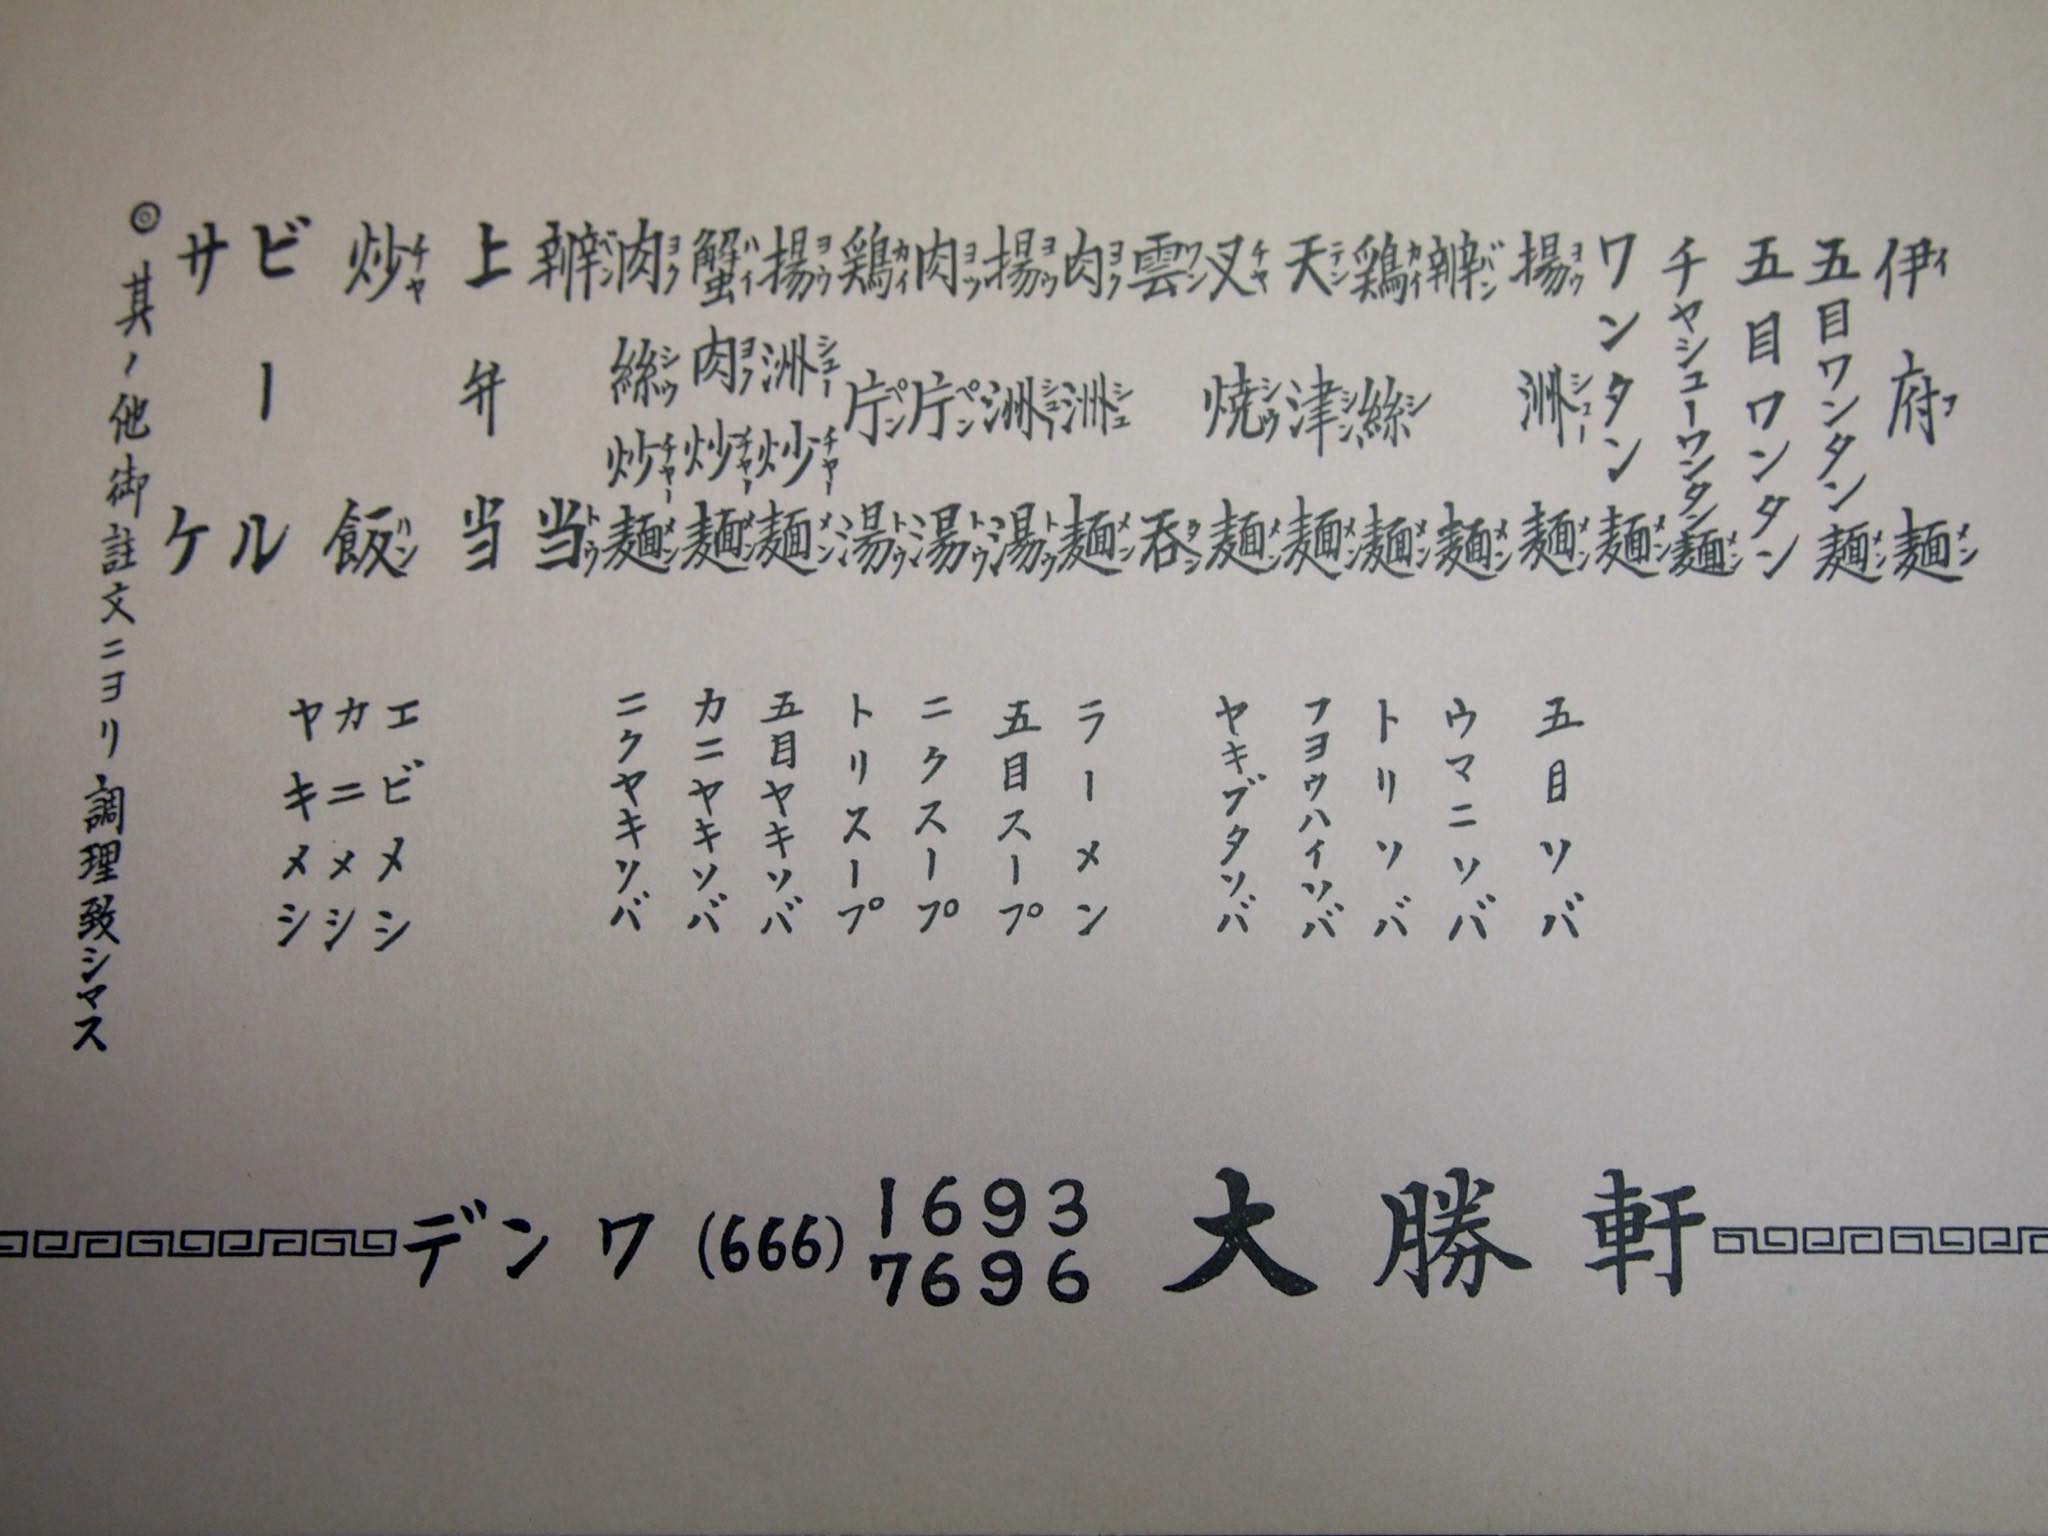 伊府麺
五目ワンタン麺
五目ワンタン
チャシューワンタン麺
ワンタン麺
揚洲麺 五目ソバ
辦麺 ウマニソバ
鶏絲麺 トリソバ
天津麺 フヨウハイソバ
叉焼麺 ヤキブタソバ
雲呑
肉洲麺 ラーメン
揚洲湯 五目スープ
肉庁湯 ニクスープ
鶏庁湯 トリスープ
揚洲炒麺 五目ヤキソバ
蟹肉炒麺 カニヤキソバ
肉絲炒麺 ニクヤキソバ
辦当
上弁当
炒飯 エビメシ カニメシ ヤキメシ
ビール
サケ
◎其ノ他御註文ニヨリ調理致シマス
デンワ (666) 1693
7696
大勝軒